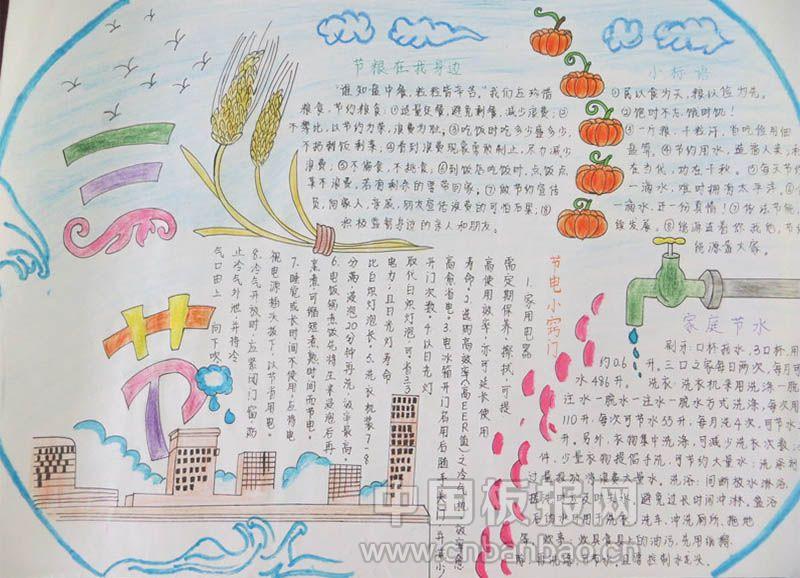 三节
节粮在我身边
"谁知盘中餐,粒粒皆辛苦。"我们应珍惜
粮食,节约粮食:①适量定餐,避免剩餐,减少浪费;②
不攀比,以节约为荣,浪费为耻。③吃饭时吃多少盛多少,
不扔剩饭剩菜;④看到浪费现象勇敢制止,尽力减少
浪费;⑤不偏食,不挑食;⑥到饭店吃饭时,点饭点
菜不浪费,若有剩余的要带回家;⑦做节约宣传
员,向家人,亲戚,朋友宣传浪费的可怕后果;⑧
积极监督身边的亲人和朋友。
小标语
①民以食为天,粮以俭为先。
②饱时不忘饿时饥!
③一斤粮,千粒汗,省吃俭用细
盘算。④节约用水,造福人类,利
在当代,功在千秋。⑤每天节约
一滴水,难时拥有太平洋。⑥
一滴水,还一份真情!⑦
续发展。⑧能源连着你我他,节约
能源靠大家。
节电小窍门
1.家用电器
需定期保养,擦拭,可提
高使用效率,亦可延长使用
寿命。2.选购高效率(高EER值)之冷
高愈省电。3.电冰箱开门名用后随手关
开门次数。4.以日光灯
取代白炽灯泡可省2/3
电力,且日光灯寿命
比白炽灯泡长。5.洗衣机装7-8
分满,浸泡20分钟再洗,效率最高。
6.电饭锅煮饭先将生米浸泡后再
烹煮可缩短煮熟时间而节电。
7.睡觉或长时间不使用,应将电
视电源插头拔下,以节省用电。
8.冷气开放时,应紧闭门窗,防
止冷气外泄并将冷
气口由上向下吹。
家庭节水
刷牙:口杯接水,3口杯,用
约0.6升。三口之家每日两次,每月可
水486升。洗衣:洗衣机采用洗涤一脱
注水一脱水一注水一脱水方式洗涤,每次用
110升,每次可节水55升,每月洗4次,可节水
升。另外,衣物集中洗涤,可减少洗衣次数;
件,少量衣物提倡手洗,可节约大量水;洗涤剂
过量投放将浪费大量水。洗浴:间断放水淋浴
及时关水,避免过长时间冲淋。盆浴
后的水可用于洗衣、洗车、冲洗厕所、拖地
炊具食具上的油污,先用
中国板报网
www.cnbanbao.cn